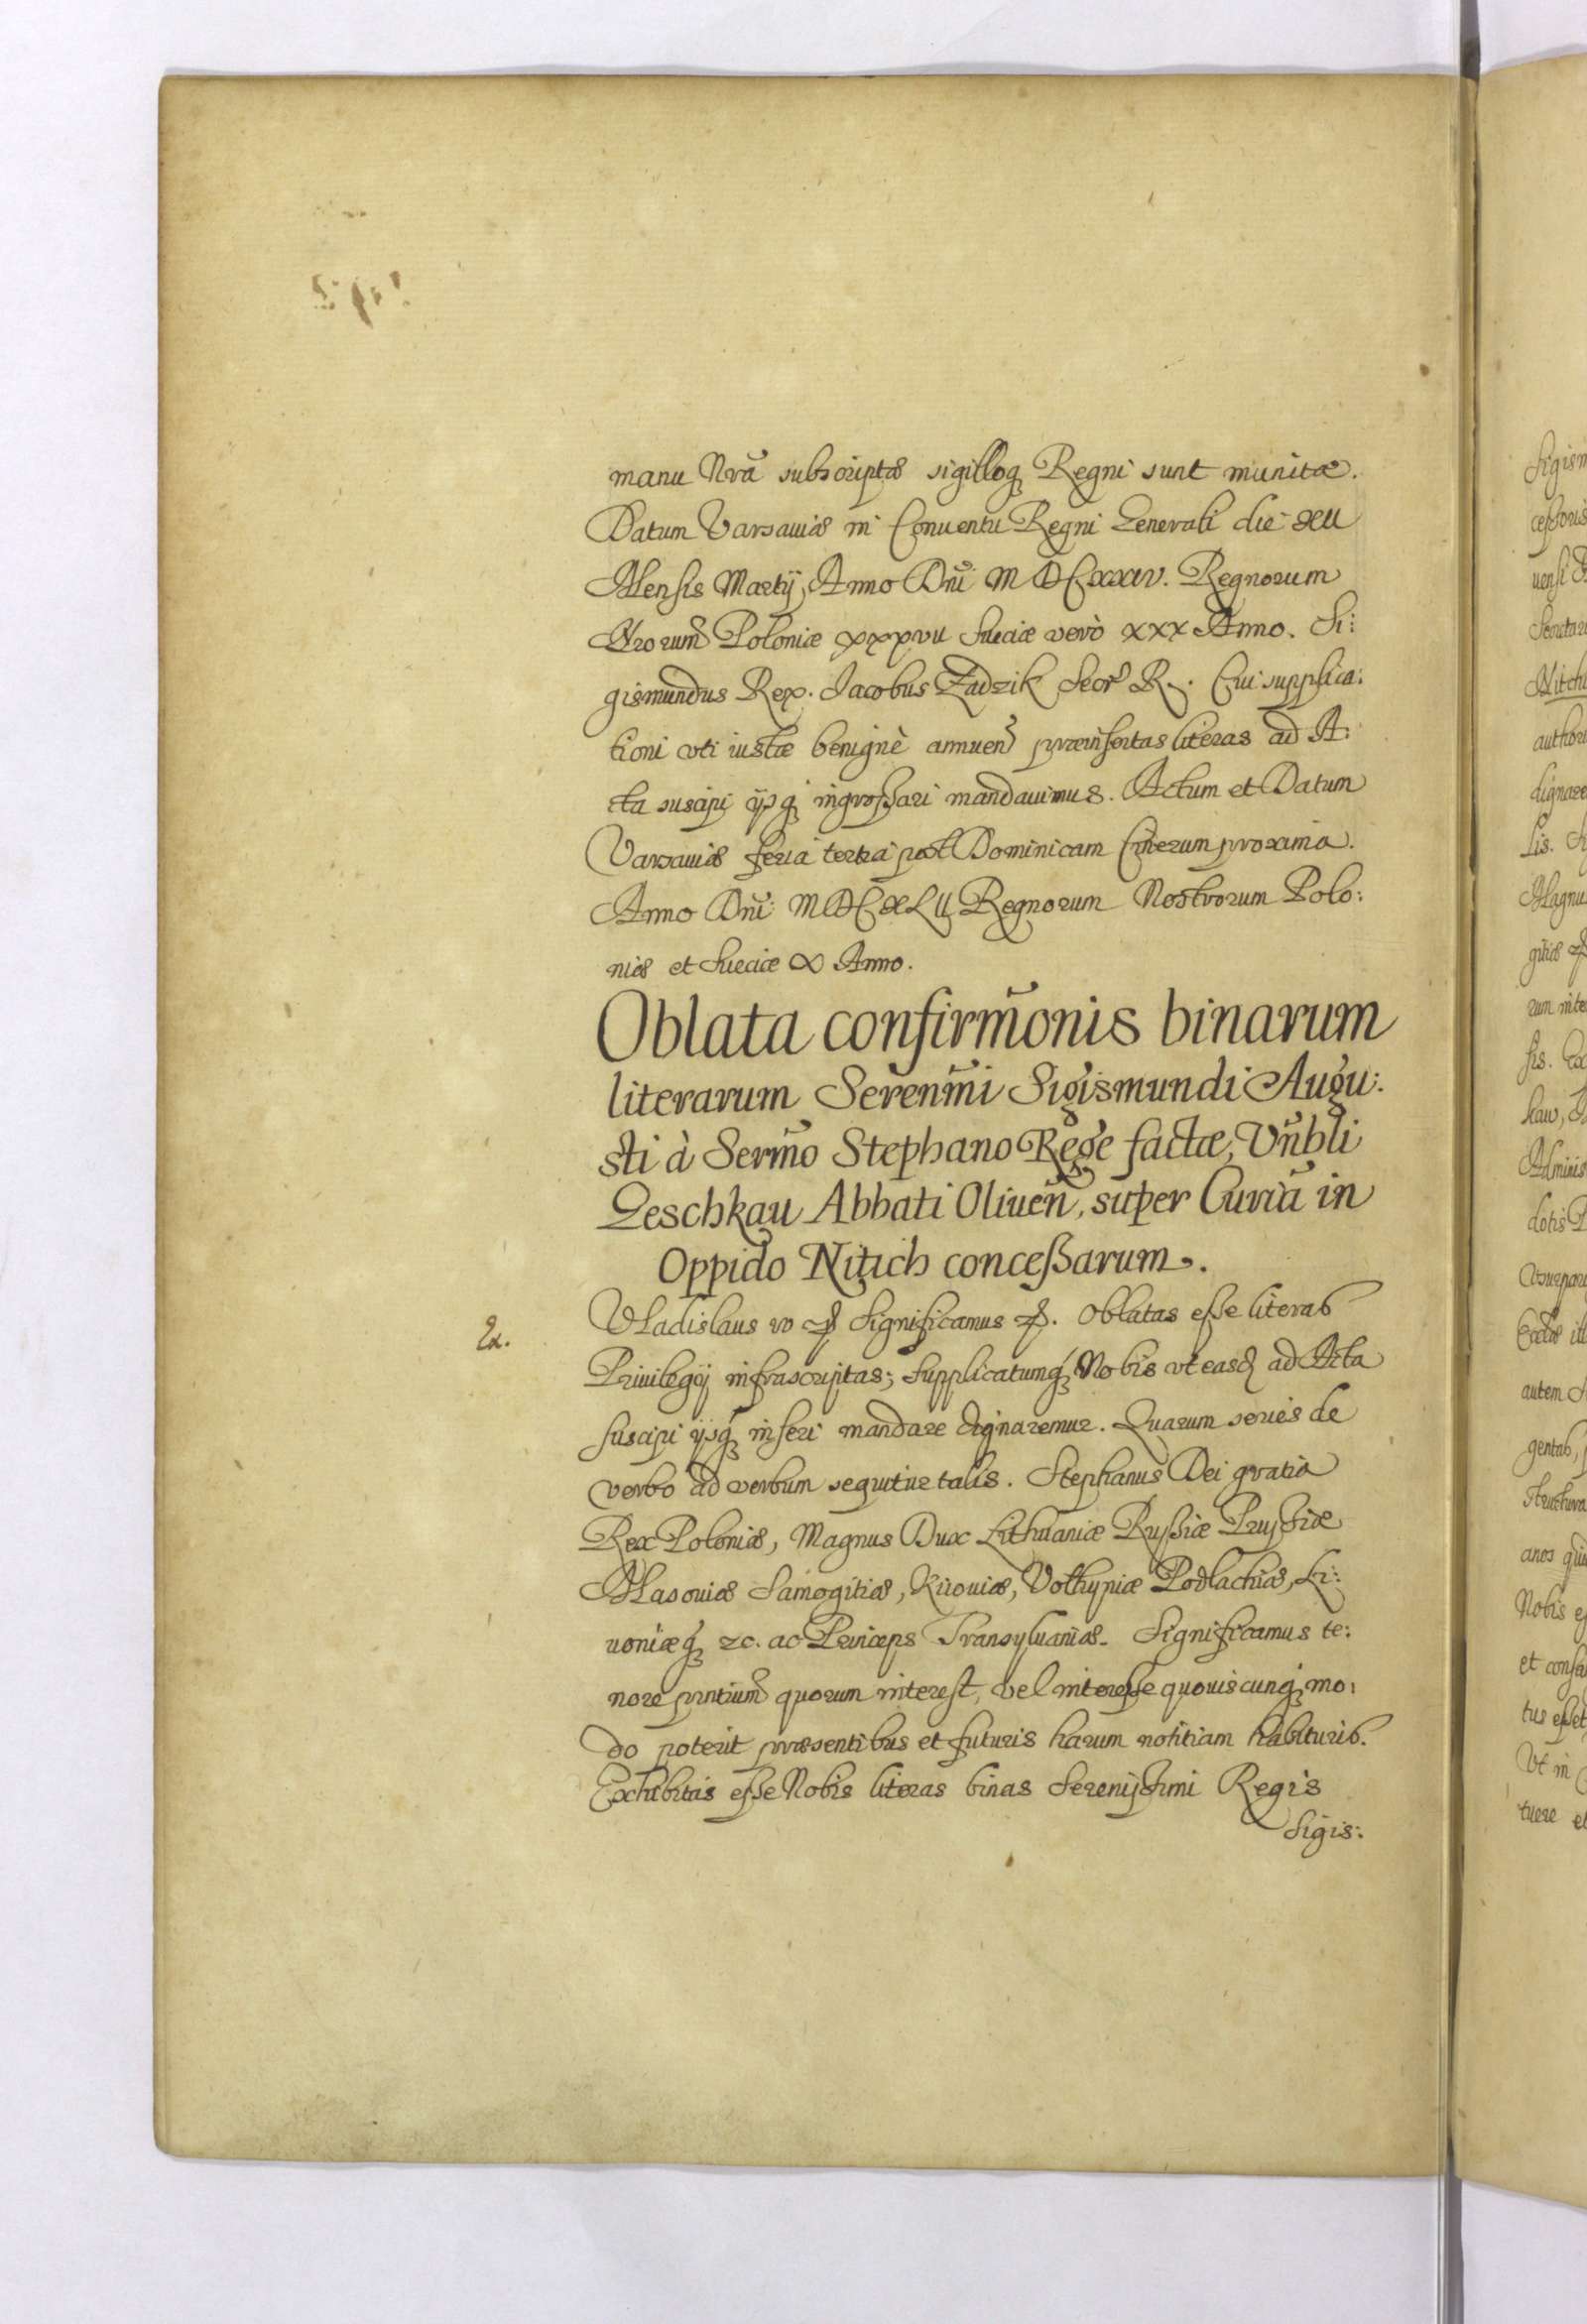 manu Nrã subscriptæ sigilloq3 Regni sunt munitæ.
Datum Varsauiæ in Conuentu Regni Generali die
Mensis Martÿ, Anno Dnĩ Regnorum
Nrorum Poloniæ xxxvii Sueciæ verò xxx Anno. Si:
gismundus Rex. Iacobus Zadzik Secr R. Cui supplica:
tioni vti iustæ benignè annuen præinsertas literas ad A:
cta suscipi ijsq3 ingrossari mandauimus. Actum et Datum
Varsauiæ feria tertia post Dominicam Cinerum proxima.
Anno Dnĩ: MDCXLII Regnorum Nostrorum Polo:
niæ et Sueciæ X Anno.
Oblata confirm̃onis binarum
literarum Seren̄mi Sigismundi Augu:
sti à Serm̃o Stephano Rege factæ, Vñbli
Geschkau Abbati Oliuen̄, super Curiã in
Oppido Nitich conceßarum.
Ex.
Vladislaus Significamus Oblatas esse literas
Priuilegij infrascriptas; supplicatumq3 Nobis vt easd ad Acta
suscipi ijsq3 inseri mandare dignaremur. Quarum series de
verbo ad verbum sequitur talis. Stephanus Dei gratia
Rex Poloniæ, Magnus Dux Lithuaniæ Rußiæ Prußiæ
Masouiæ Samogitiæ, Kiiouiæ, Volhyniæ Podlachiæ, Li:
uoniæq3 zc. ac Princeps Transyluaniæ. Significamus te:
nore pntium quorum interest, vel interesse quouiscunq3 mo:
do poterit præsentibus et futuris harum notitiam habituris.
Exhibitas esse Nobis literas binas Serenißimi Regis
Sigis: